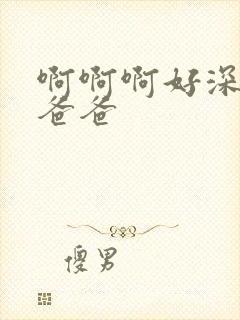 啊啊啊好深
爸爸
傻男